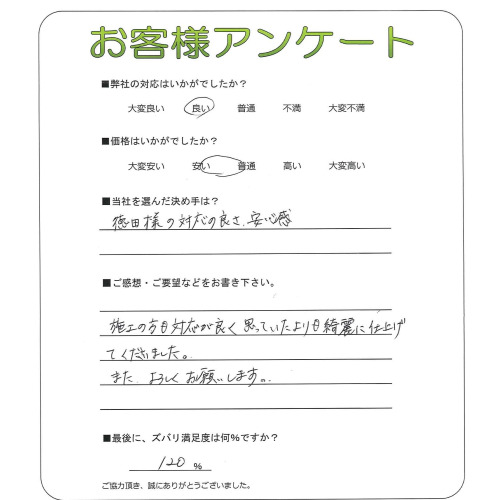 お客様アンケート
■弊社の対応はいかがでしたか？
大変良い 良い 普通 不満 大変不満
■価格はいかがでしたか？
大変安い 安い 普通 高い 大変高い
■当社を選んだ決め手は？
徳田様の対応の良さ、安心感
■ご感想・ご要望などをお書き下さい。
施工の方も対応が良く思っていたよりも綺麗に仕上げ
てくださいました。
また よろしくお願いします。
■最後に、ズバリ満足度は何％ですか？
120 %
ご協力頂き、誠にありがとうございました。